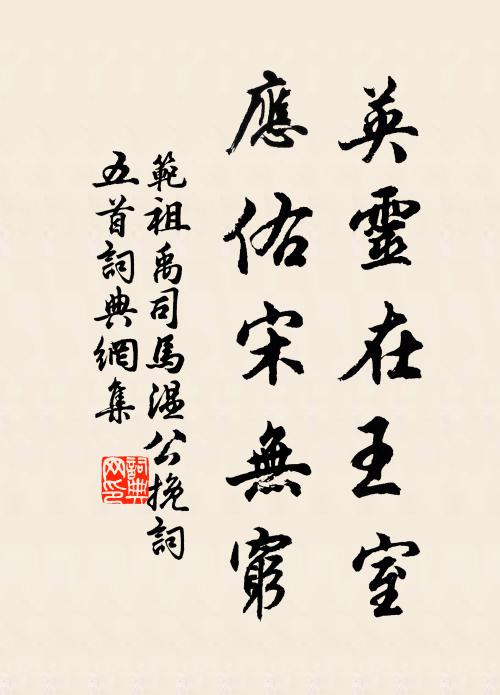 英靈在王室
應佑宋無窮
範祖禹司馬溫公挽詞
五首詞典網集
詞典網印